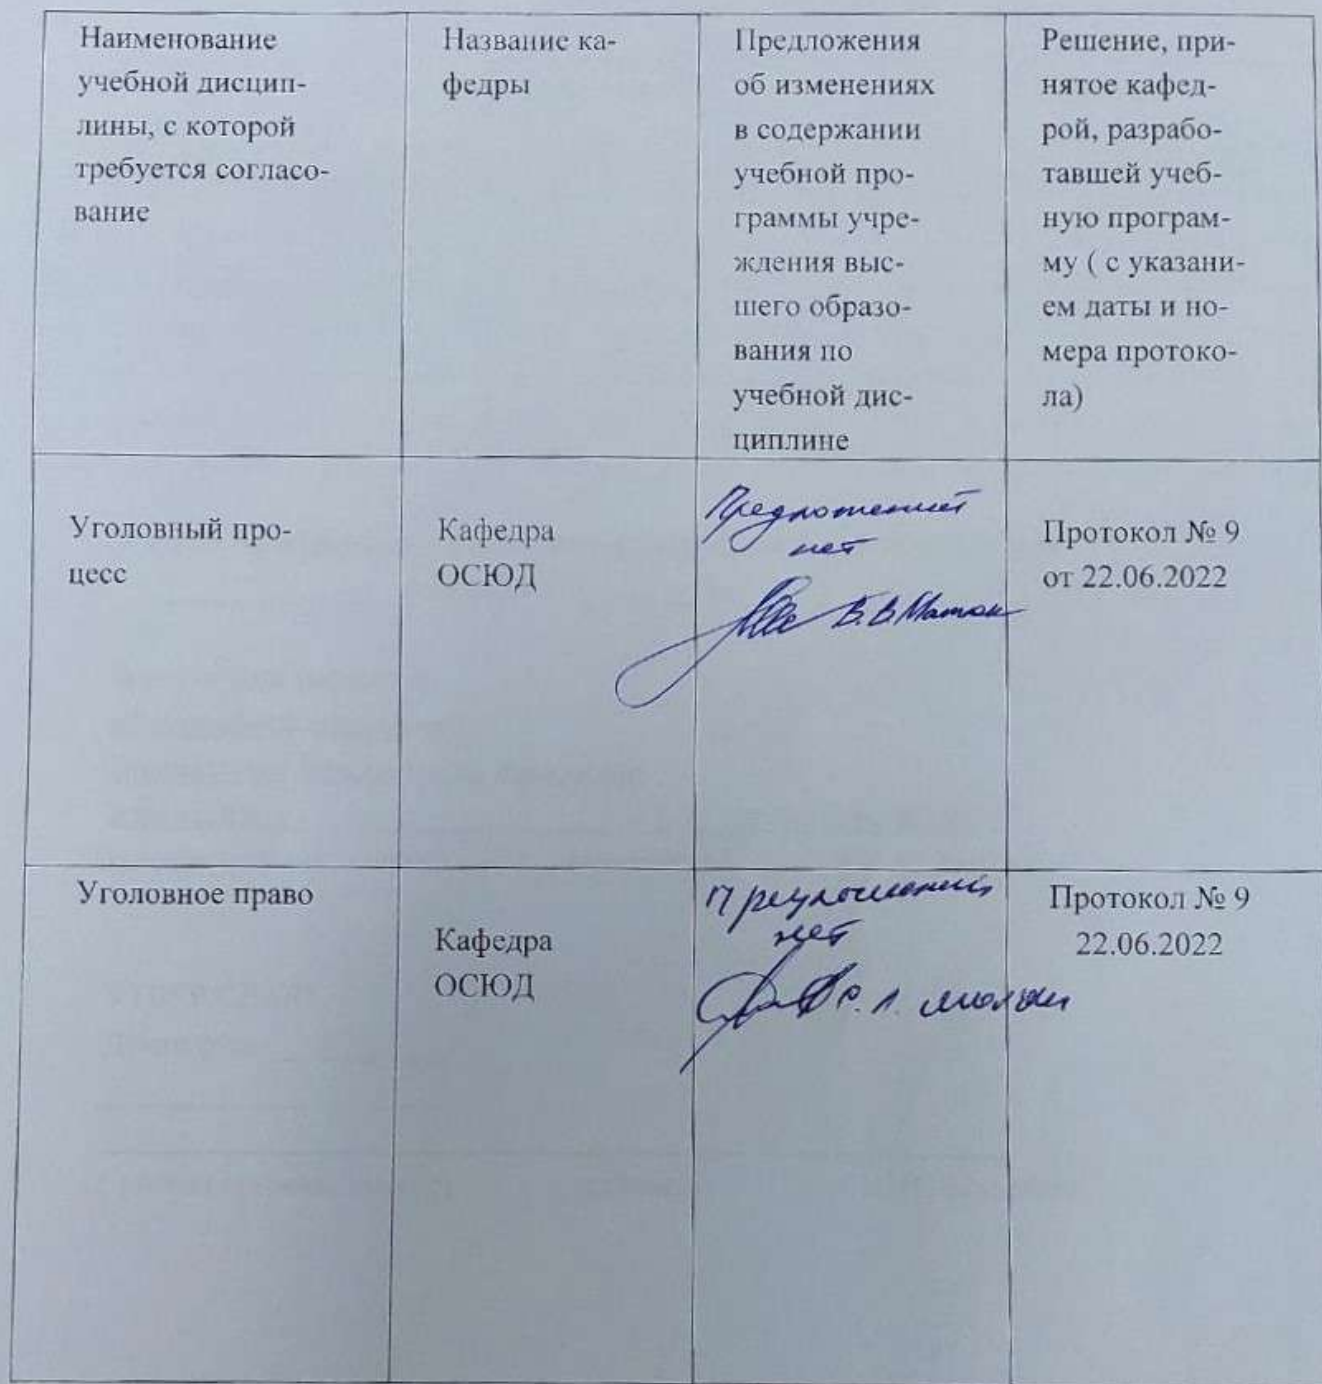 Наименование
учебной дисцип-
лины, с которой
требуется согласо-
вание
Название ка-
федры
Предложения
об изменениях
в содержании
учебной про-
граммы учре-
ждения выс-
шего образо-
вания по
учебной дис-
циплине
Решение, при-
нятое кафед-
рой, разрабо-
тавшей учеб-
ную програм-
му ( с указани-
ем даты и но-
мера протоко-
ла)
Уголовный про-
цесс
Кафедра
ОСЮД
Предложений
нет
Протокол № 9
от 22.06.2022
Уголовное право
Кафедра
ОСЮД
Предложений
нет
Протокол № 9
22.06.2022